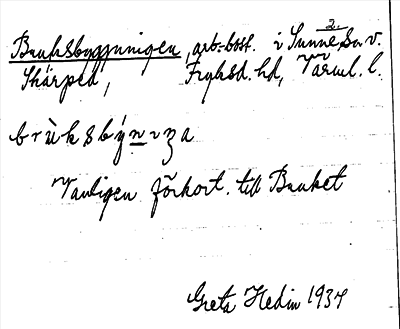 2.
Bruksbyggningen, arb.-bost. i Sunne, Sn v.
Skärped, Fryksd. hd, Värml. l.
b r ù k s b ý n ı z a
Vanligen förkort. till Bruket
Greta Hedin 1934